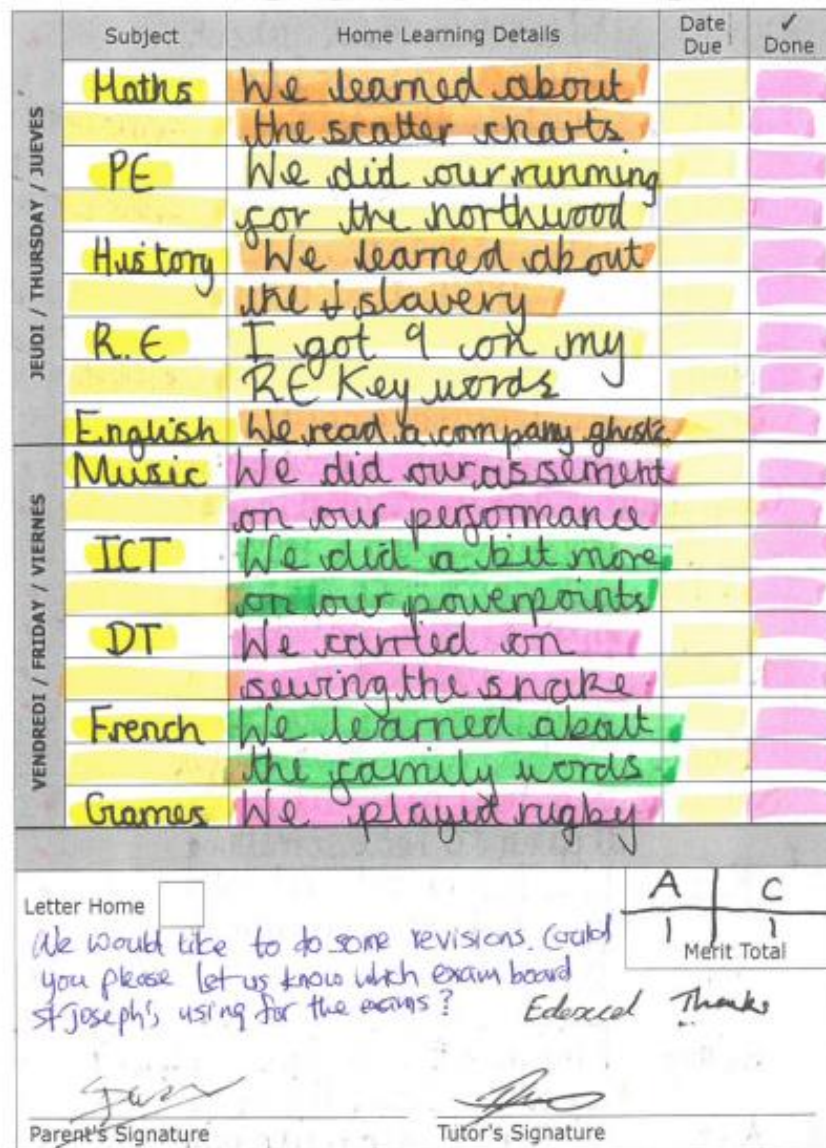 Subject Home Learning Details Date Due ✓ Done
JEUDI / THURSDAY / JUEVES
Maths We learned about
the scatter charts
PE We did our running
for the northwood
History We learned about
the slavery
R.E I got 9 on my
RE Key words
English We read a company ghost
VENDREDI / FRIDAY / VIERNES
Music We did our assement
on our performance
ICT We did a bit more
on our powerpoints
DT We carried on
sewing the snake
French We learned about
the family words
Games We played rugby
Letter Home
A C
1 1
Merit Total
We would like to do some revisions. Could
you please let us know which exam board
St Joseph's using for the exams?
Edexcel Thanks
Parent's Signature Tutor's Signature